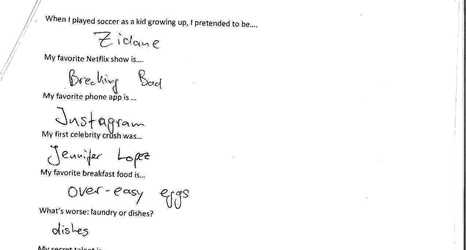 When I played soccer as a kid growing up, I pretended to be....
Zidane
My favorite Netflix show is....
Breaking Bad
My favorite phone app is ...
Instagram
My first celebrity crush was...
Jennifer Lopez
My favorite breakfast food is...
over-easy eggs
What's worse: laundry or dishes?
dishes
My secret talent is